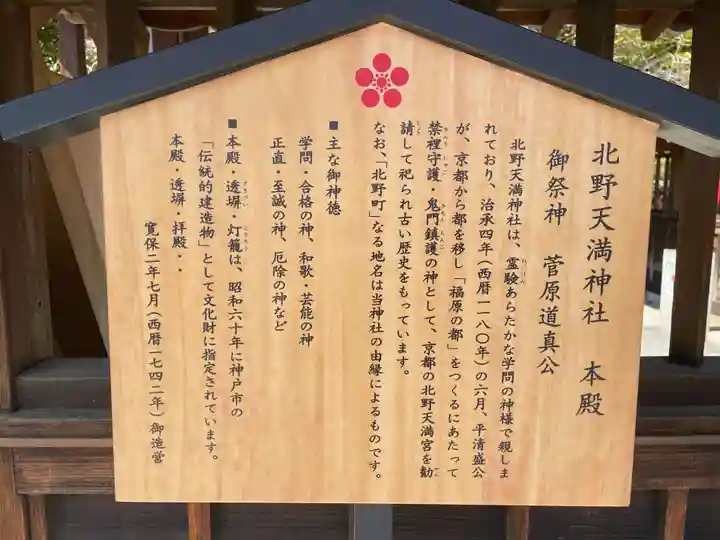 北野天満神社 本殿
御祭神 菅原道真公
北野天満神社は、霊験あらたかな学問の神様で親しま
れており、治承四年(西暦一一八〇年)の六月、平清盛公
が、京都から都を移し「福原の都」をつくるにあたって
禁裡守護・鬼門鎮護の神として、京都の北野天満宮を勧
請して祀られ古い歴史をもっています。
なお、「北野町」なる地名は当神社の由縁によるものです。
■主な御神徳
学問・合格の神、和歌・芸能の神
正直・至誠の神、厄除の神など
■本殿・透塀・灯籠は、昭和六十年に神戸市の
「伝統的建造物」として文化財に指定されています。
本殿・透塀・拝殿・・
寛保二年七月(西暦一七四二年)御造営